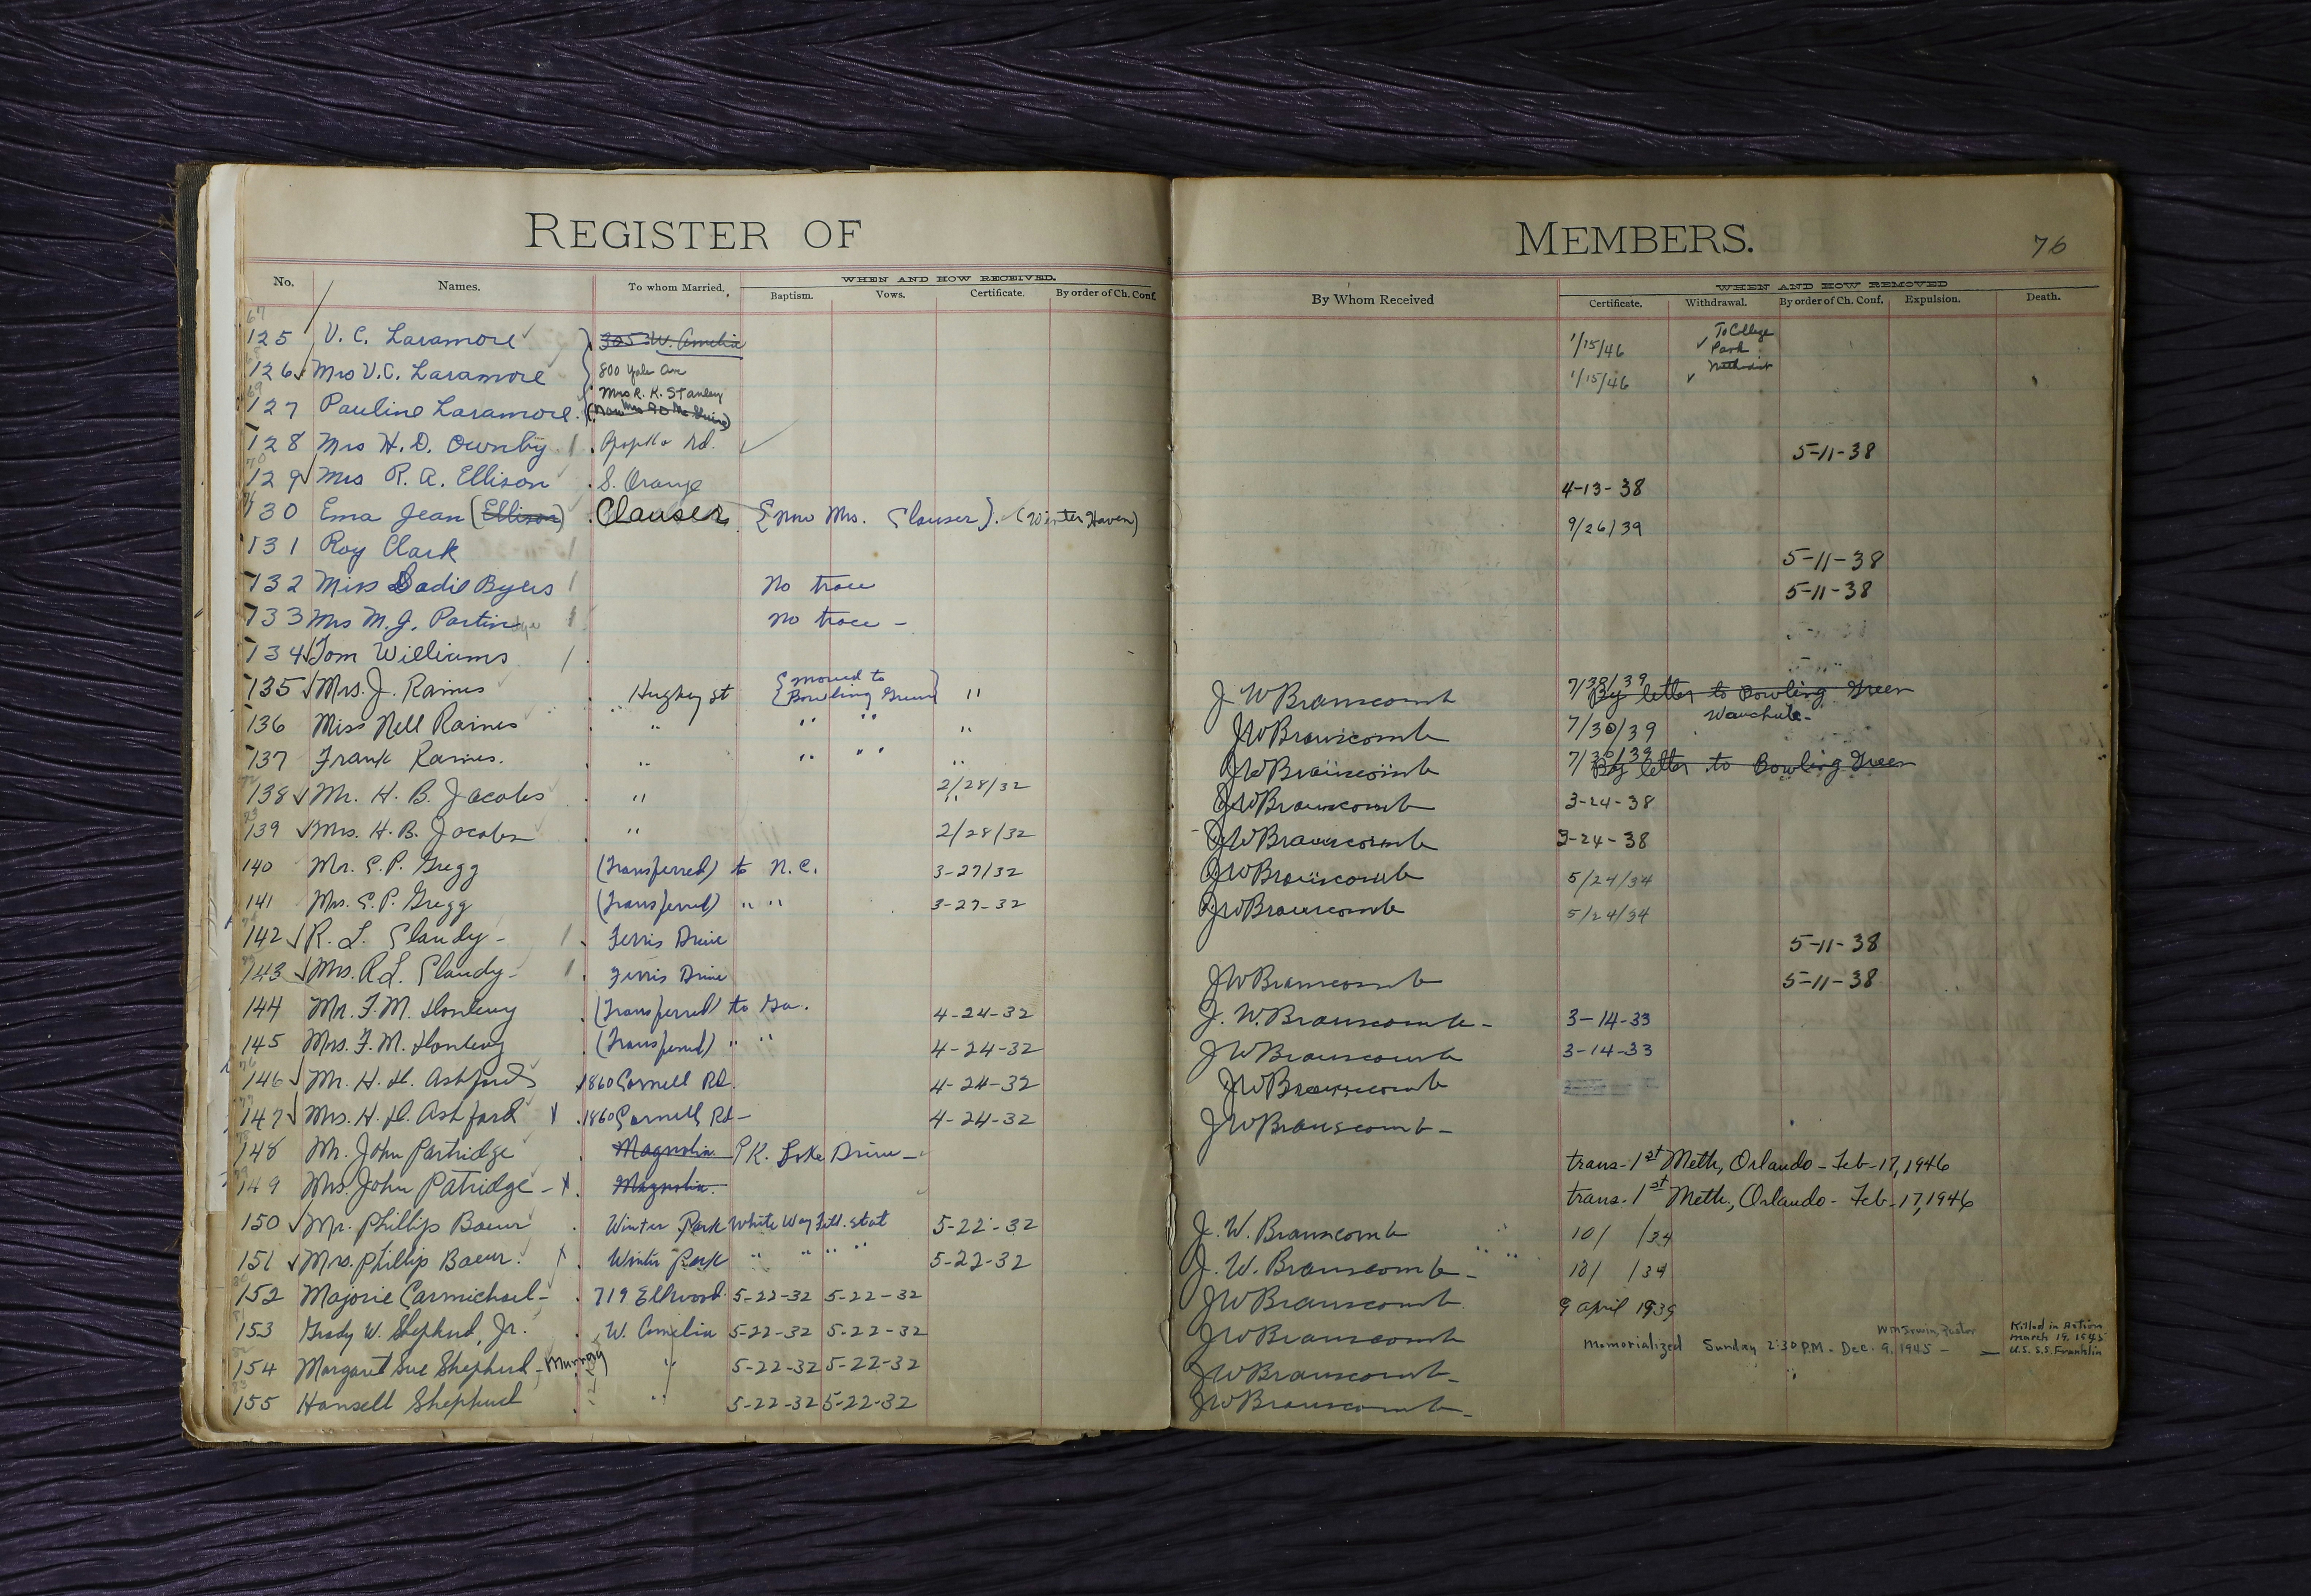 REGISTER OF MEMBERS. 76
No. Names. To whom Married. WHEN AND HOW RECEIVED. By Whom Received WHEN AND HOW REMOVED
Baptism. Vows. Certificate. By order of Ch. Conf. Certificate. Withdrawal. By order of Ch. Conf. Expulsion. Death.
125 V. C. Laramore 305 W. Amelia 1/15/46 To College Park Methodist
126 Mrs V. C. Laramore 800 Yale Ave 1/15/46
127 Pauline Laramore. Mrs R. K. Stanley
128 Mrs H. D. Ownby. Apopka Rd. 5-11-38
129 Mrs R. A. Ellison S. Orange 4-13-38
130 Ema Jean (Ellison) Clauser {now Mrs. Clauser}. (Winter Haven) 9/26/39
131 Roy Clark 5-11-38
132 Miss Sadie Byers No trace 5-11-38
133 Mrs M. J. Partin No trace -
134 Tom Williams
135 Mrs. J. Raines Hughey St {moved to Bowling Green} " J. W Branscomb 7/30/39 By letter to Bowling Green
136 Miss Nell Raines " " " " JW Branscomb 7/30/39 Wauchula-
137 Frank Raines. " " " " JW Branscomb 7/30/39 By letter to Bowling Green
138 Mr. H. B. Jacobs " 2/28/32 JW Branscomb 3-24-38
139 Mrs. H. B. Jacobs " 2/28/32 JW Branscomb 3-24-38
140 Mr. E. P. Gregg (Transferred) to N.C. 3-27/32 JW Branscomb 5/24/34
141 Mrs. E. P. Gregg (Transferred) " " 3-27-32 JW Branscomb 5/24/34
142 R. L. Clandy- Ferris Drive 5-11-38
143 Mrs. R L. Clandy- Ferris Drive JW Branscomb 5-11-38
144 Mr. F. M. (Transferred) to Ga. 4-24-32 J. W. Branscomb- 3-14-33
145 Mrs. F. M. (Transferred) " " 4-24-32 JW Branscomb 3-14-33
146 Mr. H. H. Ashford 1860 Cornell Rd. 4-24-32 JW Branscomb
147 Mrs. H. H. Ashford x 1860 Cornell Rd- 4-24-32 JW Branscomb-
148 Mr. John Partridge Magnolia PK. Lake Drive- trans- 1st Meth, Orlando - Feb-17, 1946
149 Mrs. John Patridge - x Magnolia. trans. 1st Meth., Orlando - Feb-17, 1946
150 Mr. Phillip Baeur Winter Park White Way Fill. Stat 5-22-32 J. W. Branscomb 10/ /34
151 Mrs. Phillip Baeur. x Winter Park " " " " 5-22-32 J. W. Branscomb- 10/ /34
152 Majorie Carmichael- 719 Ellwood 5-22-32 5-22-32 JW Branscomb 9 April 1939
153 Grady W. Shepherd, Jr. W. Amelia 5-22-32 5-22-32 JW Branscomb Memorialized Sunday 2:30 P.M. - Dec. 9, 1945 - Wm Irwin, Pastor Killed in Action March 19, 1945 U.S.S. Franklin
154 Margaret Sue Shepherd-Murray " 5-22-32 5-22-32 JW Branscomb-
155 Hansell Shepherd " 5-22-32 5-22-32 JW Branscomb-